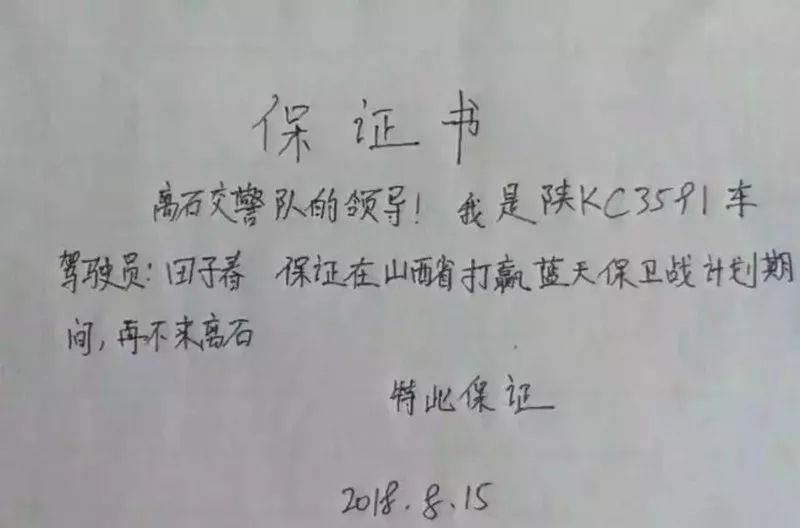 保证书
离石交警队的领导！我是陕KC3591车
驾驶员：田子春 保证在山西省打赢蓝天保卫战计划期
间，再不来离石
特此保证
2018.8.15